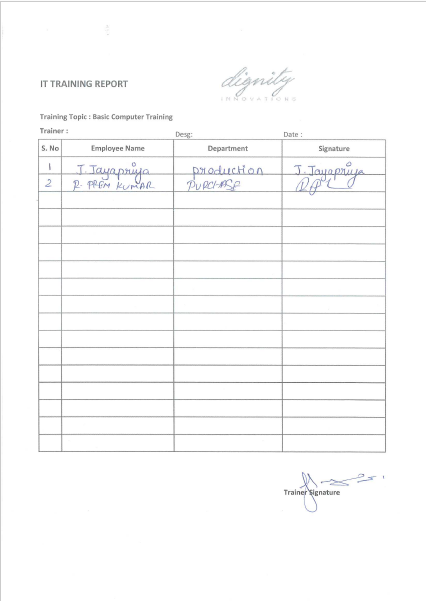 dignity
INNOVATIONS
IT TRAINING REPORT
Training Topic : Basic Computer Training
Trainer :
Desg:
Date :
S. No Employee Name Department Signature
1 J. Jayapriya production J. Jayapriya
2 R. PREM KUMAR PURCHASE
Trainer Signature